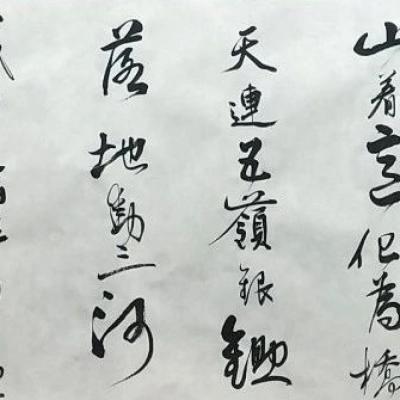 山着意化為橋
天連五嶺銀鋤
落地動三河